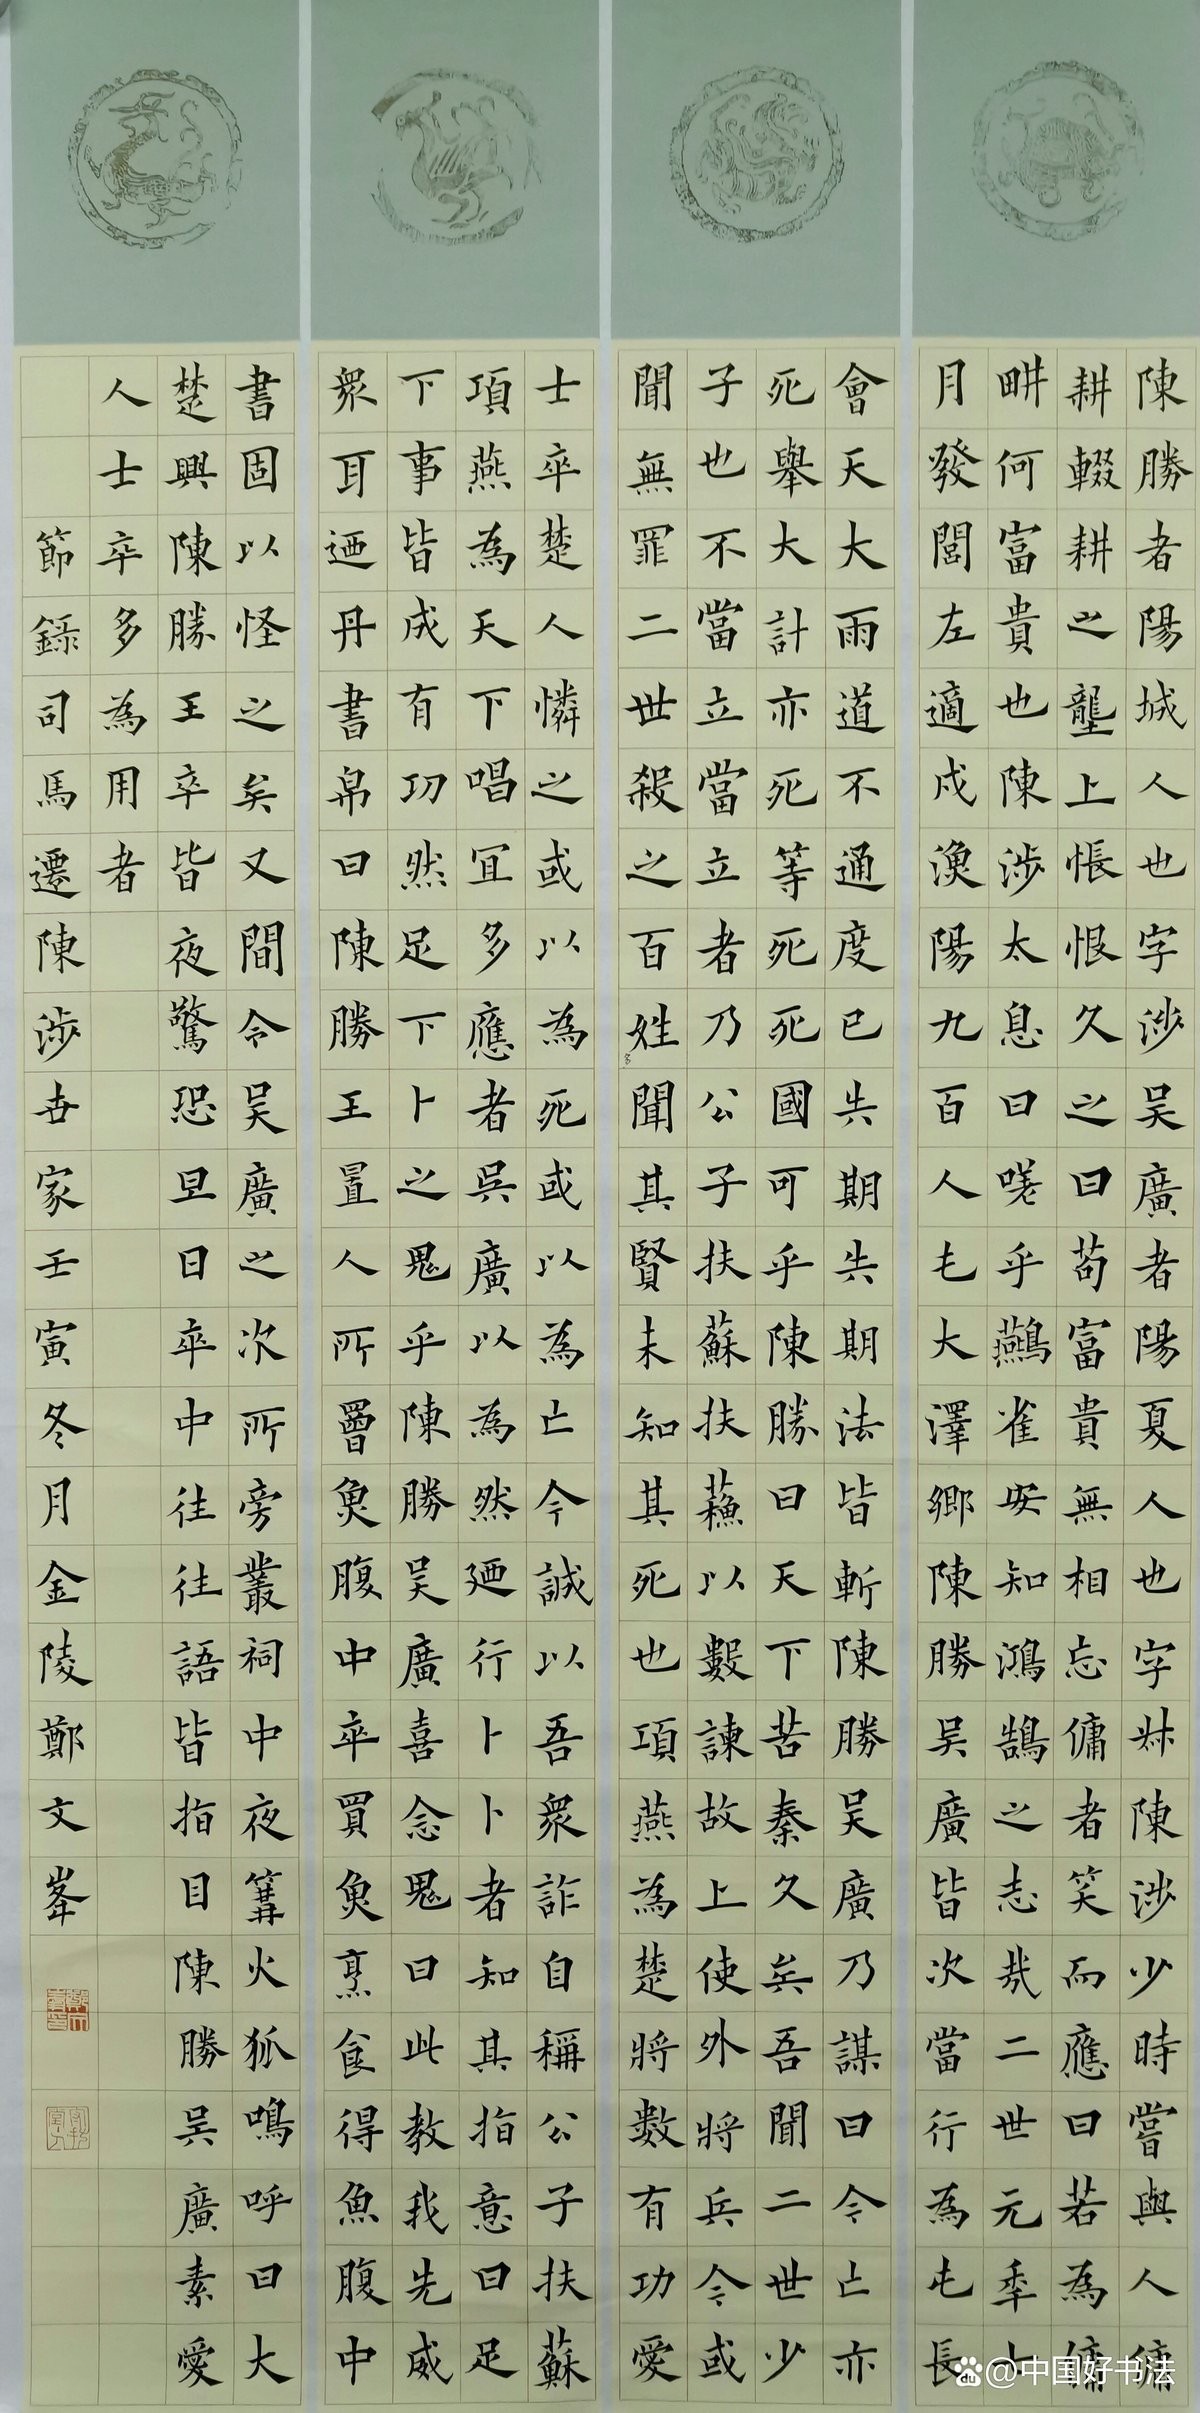 陳勝者陽城人也字涉吳廣者陽夏人也字叔陳涉少時嘗與人傭
耕輟耕之壟上悵恨久之曰苟富貴無相忘傭者笑而應曰若為傭
畊何富貴也陳涉太息曰嗟乎鷰雀安知鴻鵠之志哉二世元年七
月發閭左適戍漁陽九百人屯大澤鄉陳勝吳廣皆次當行為屯長
會天大雨道不通度已失期失期法皆斬陳勝吳廣乃謀曰今亡亦
死舉大計亦死等死死國可乎陳勝曰天下苦秦久矣吾聞二世少
子也不當立當立者乃公子扶蘇扶蘓以數諫故上使外將兵今或
聞無罪二世殺之百姓聞其賢未知其死也項燕為楚將數有功愛
士卒楚人憐之或以為死或以為亡今誠以吾眾詐自稱公子扶蘇
項燕為天下唱宜多應者吳廣以為然廼行卜卜者知其指意曰足
下事皆成有功然足下卜之鬼乎陳勝吳廣喜念鬼曰此教我先威
眾耳迺丹書帛曰陳勝王置人所罾魚腹中卒買魚烹食得魚腹中
書固以怪之矣又間令吳廣之次所旁叢祠中夜篝火狐鳴呼曰大
楚興陳勝王卒皆夜驚恐旦日卒中往往語皆指目陳勝吳廣素愛
人士卒多為用者
節錄司馬遷陳涉世家壬寅冬月金陵鄭文峯
@中国好书法